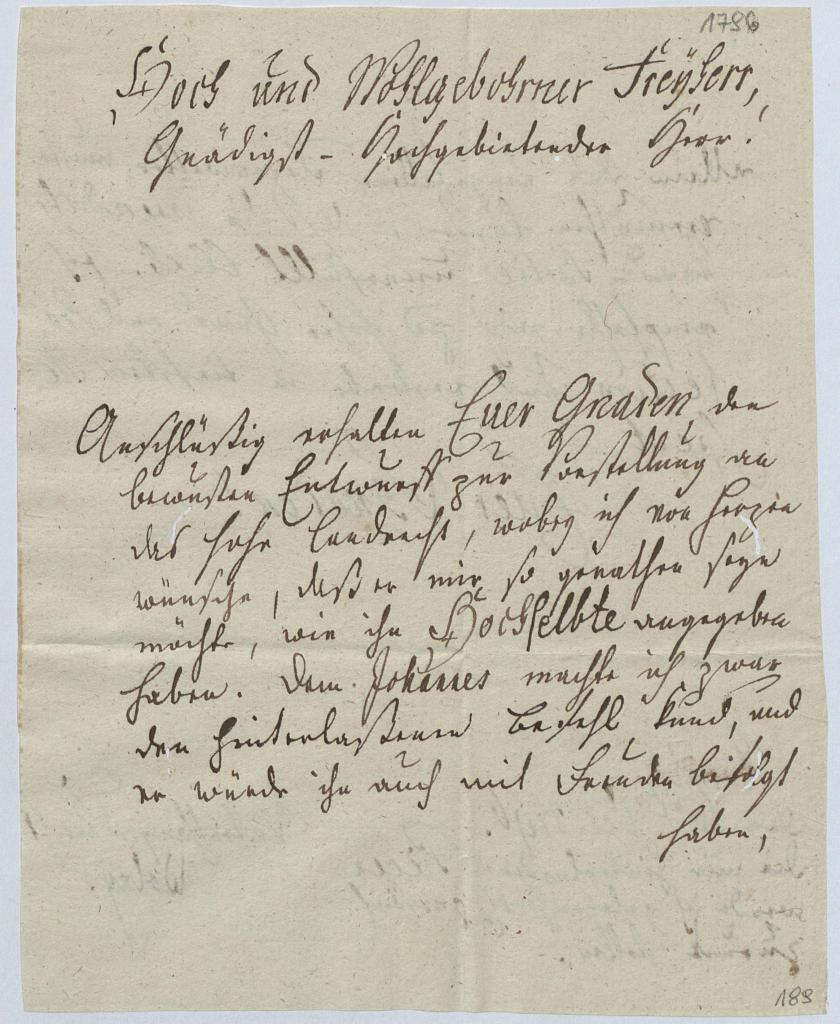 1796
Hoch und Wohlgebohrner Freyherr,
Gnädigst - Hochgebietender Herr!
Anschlüßig erhalten Euer Gnaden, den
bewusten Entwurff zur Vorstellung an
das hohe Landrecht, wobey ich von Herzen
wünsche, daß er mir so gerathen seyn
möchte, wie ihn Hochselbte angegeben
haben. Dem Johannes machte ich zwar
den hinterlaßenen Befehl kund, und
er würde ihn auch mit Freuden befolgt
haben,
189